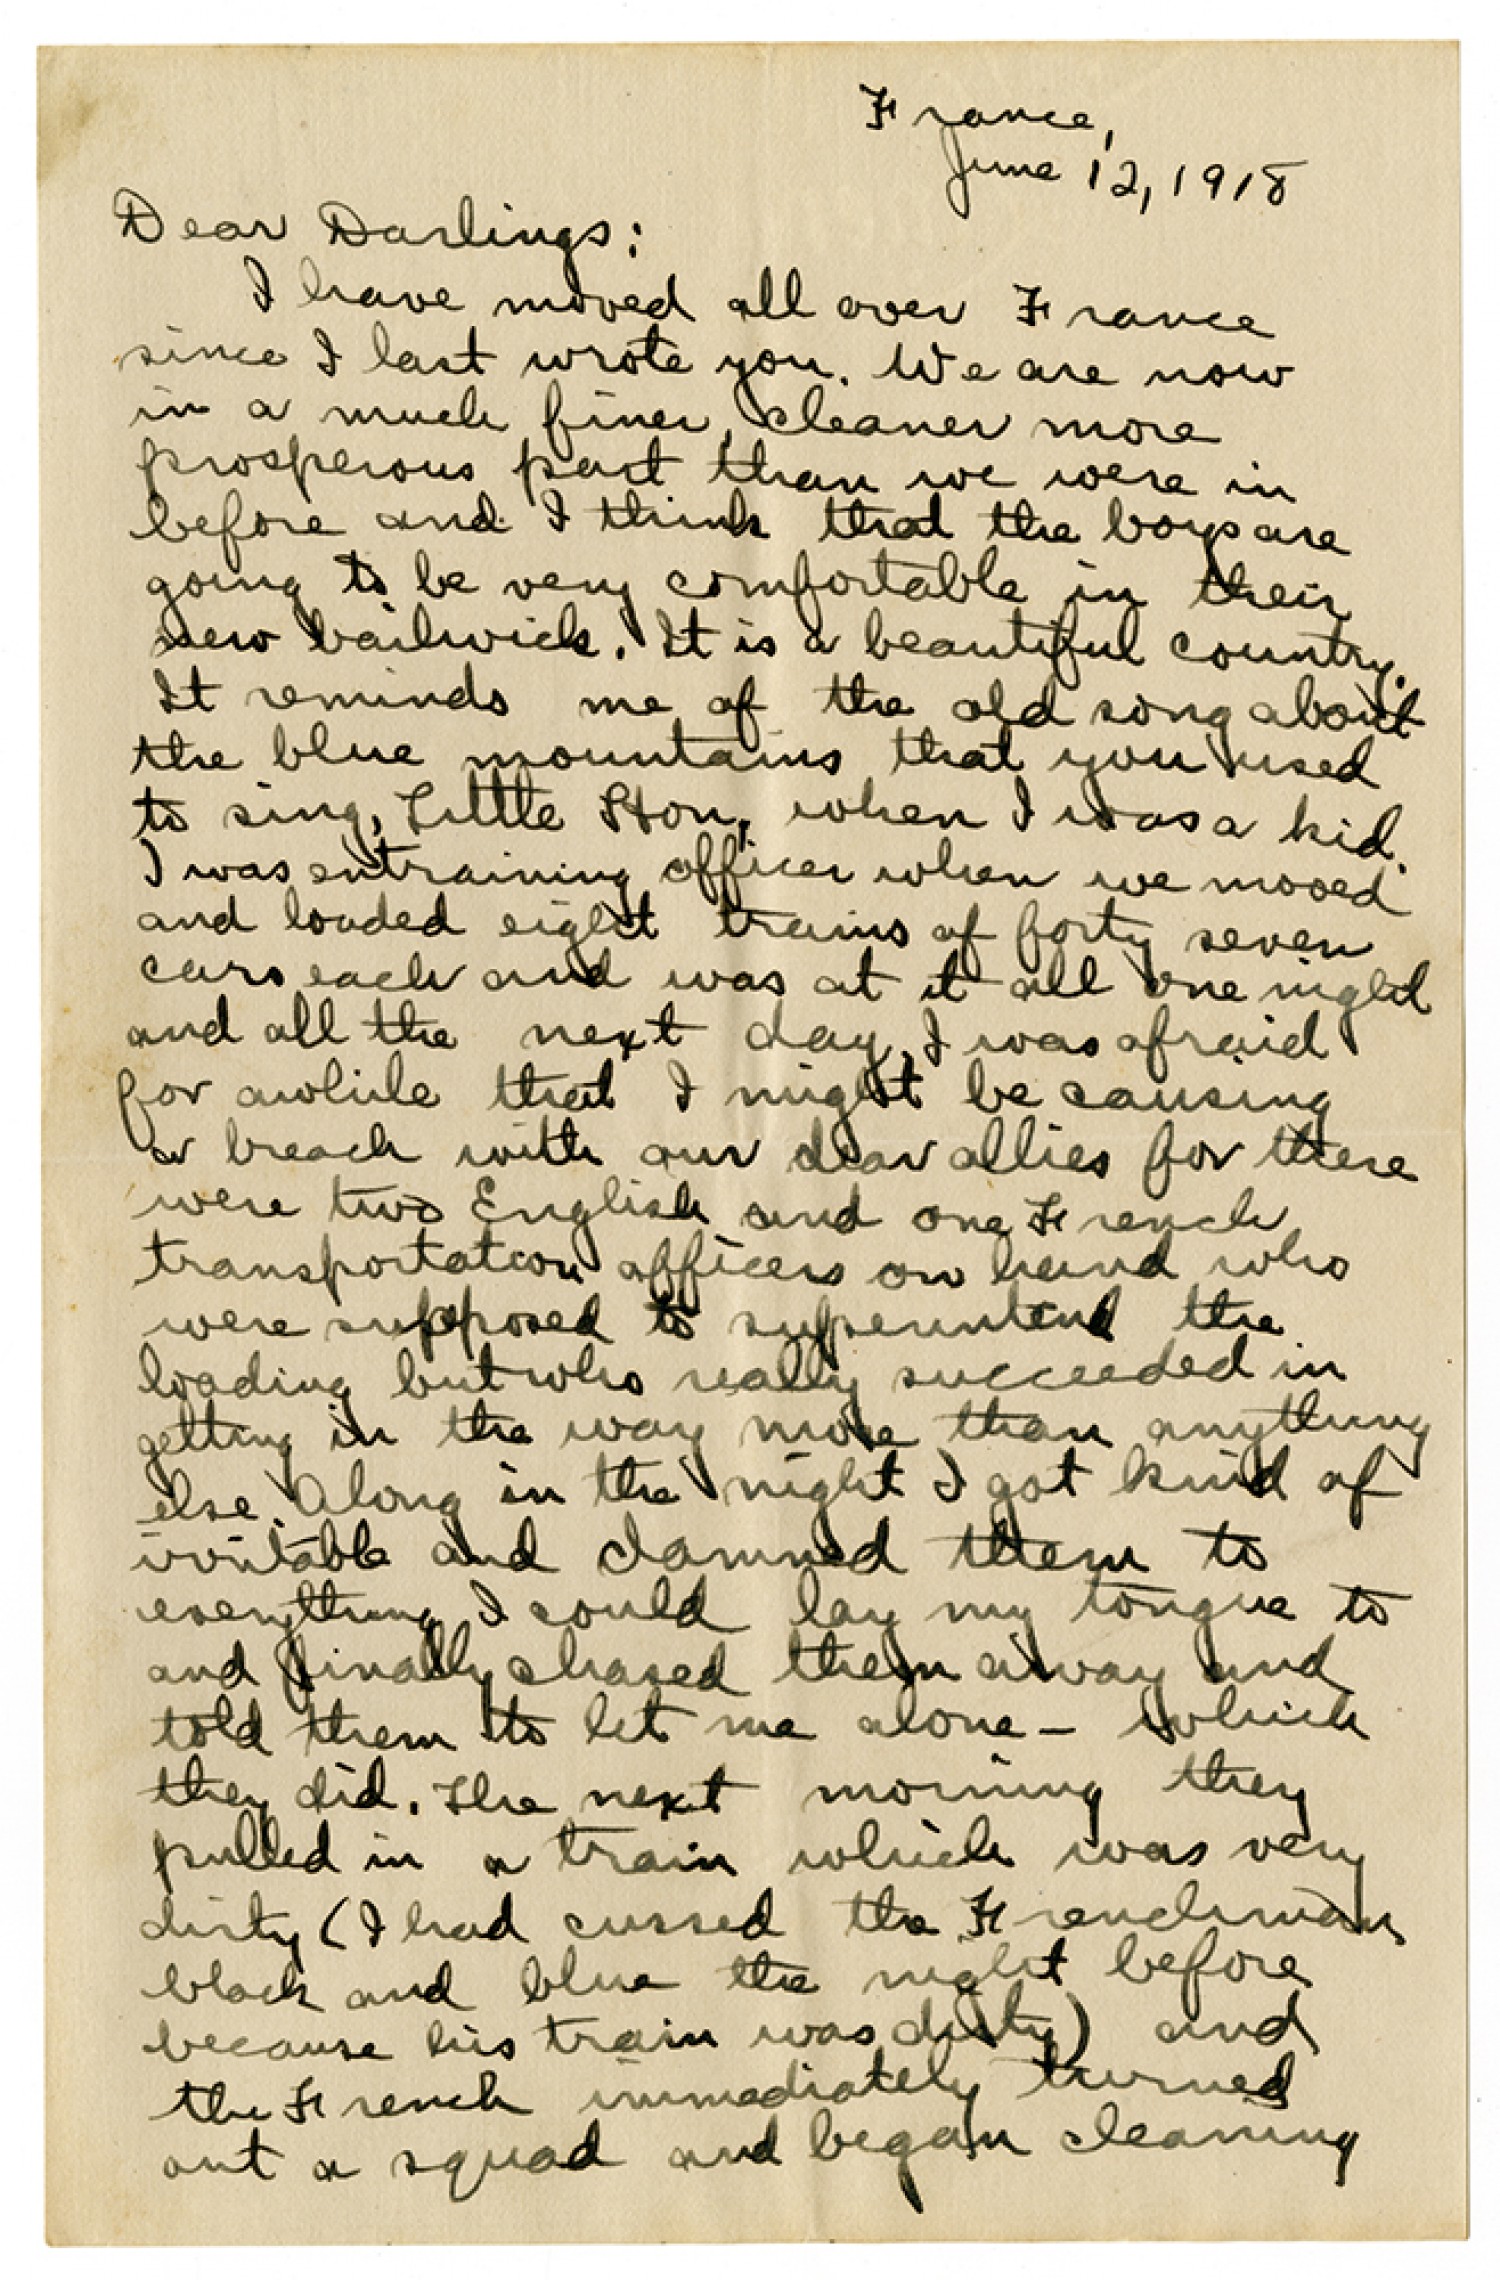 France,
June 12, 1918
Dear Darlings:
I have moved all over France
since I last wrote you. We are now
in a much finer, cleaner more
prosperous part than we were in
before and I think that the boys are
going to be very comfortable in their
new bailwick. It is a beautiful country.
It reminds me of the old song about
the blue mountains that you used
to sing, Little Hon, when I was a kid.
I was entraining officer when we moved
and loaded eight trains of forty seven
cars each and was at it all one night
and all the next day. I was afraid
for awhile that I might be causing
a breach with our dear allies for there
were two English and one French
transportation officers on hand who
were supposed to superintend the
loading but who really succeeded in
getting in the way more than anything
else. Along in the night I got kind of
irritable and damned them to
everything I could lay my tongue to
and finally chased them away and
told them to let me alone — which
they did. The next morning they
pulled in a train which was very
dirty (I had cussed the Frenchman
black and blue the night before
because his train was dirty) and
the French immediately turned
out a squad and began cleaning